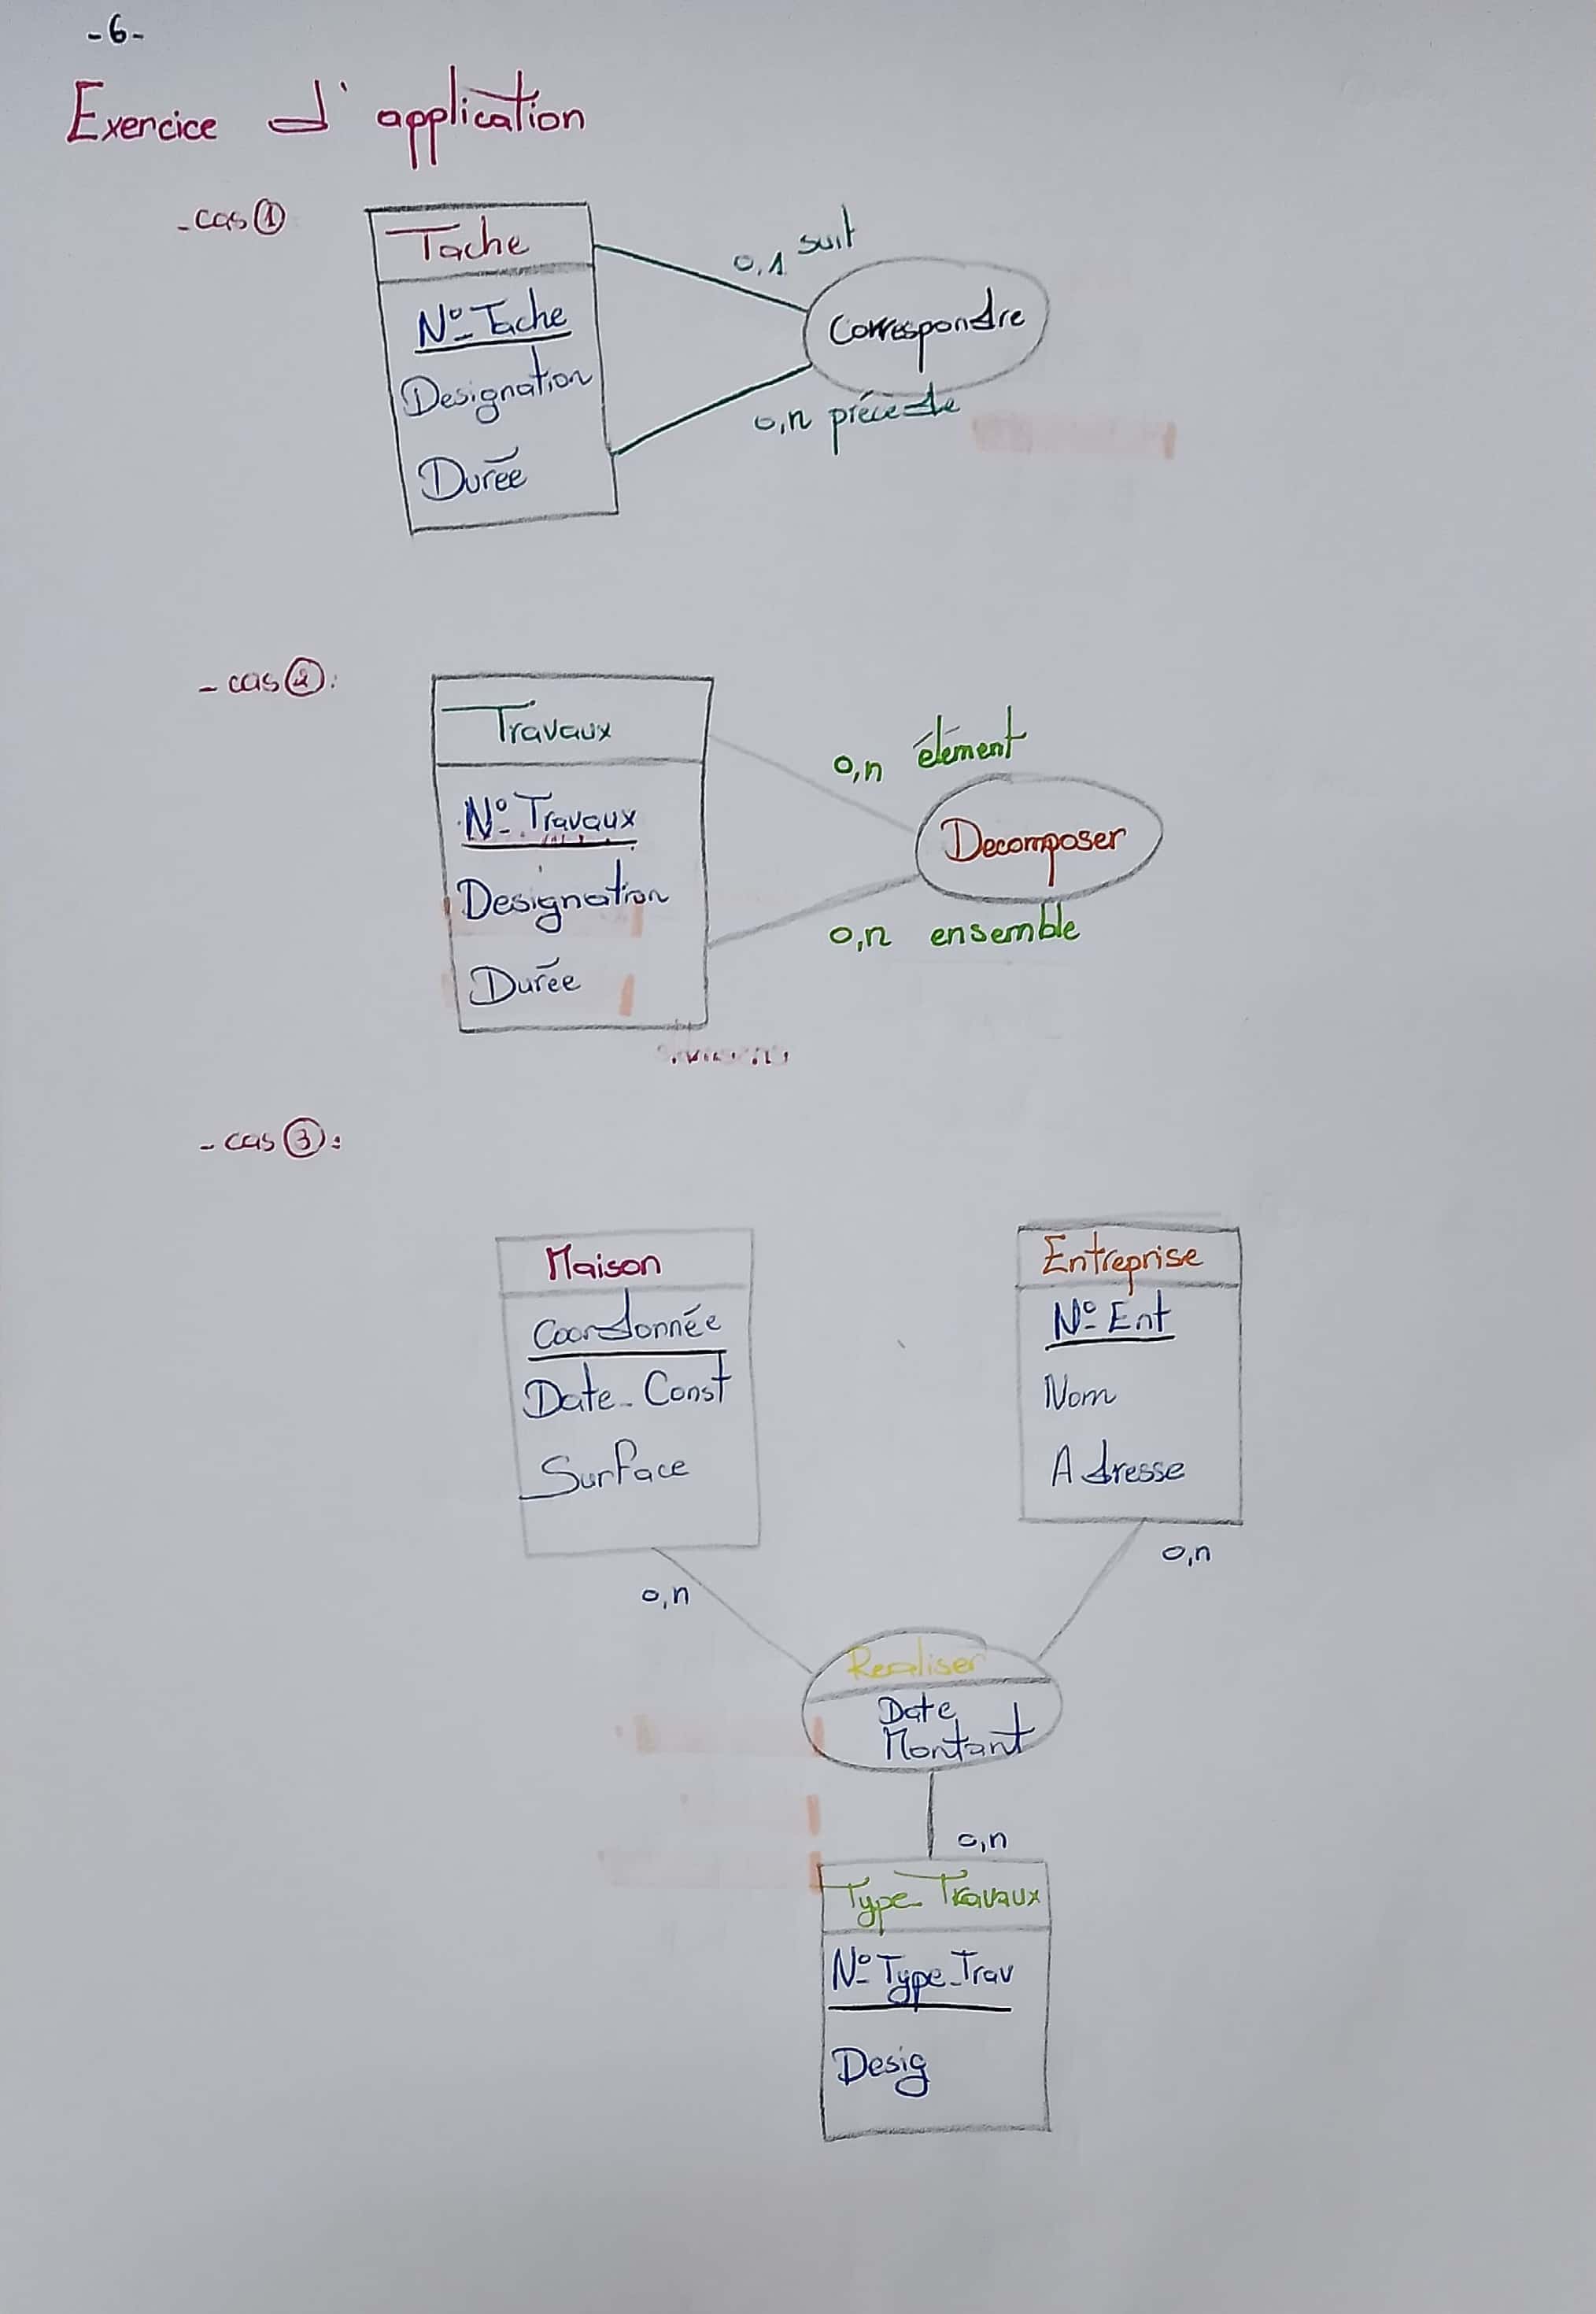 -6-
Exercice d'application
- cas ①
Tache
N° Tache
Designation
Durée
0,1 suit
Correspondre
0,n précede
- cas ②:
Travaux
N° Travaux
Designation
Durée
0,n élement
Decomposer
0,n ensemble
- cas ③:
Maison
Coordonnée
Date_Const
Surface
0,n
Entreprise
N° Ent
Nom
Adresse
0,n
Realiser
Date
Montant
0,n
Type_Travaux
N° Type_Trav
Desig